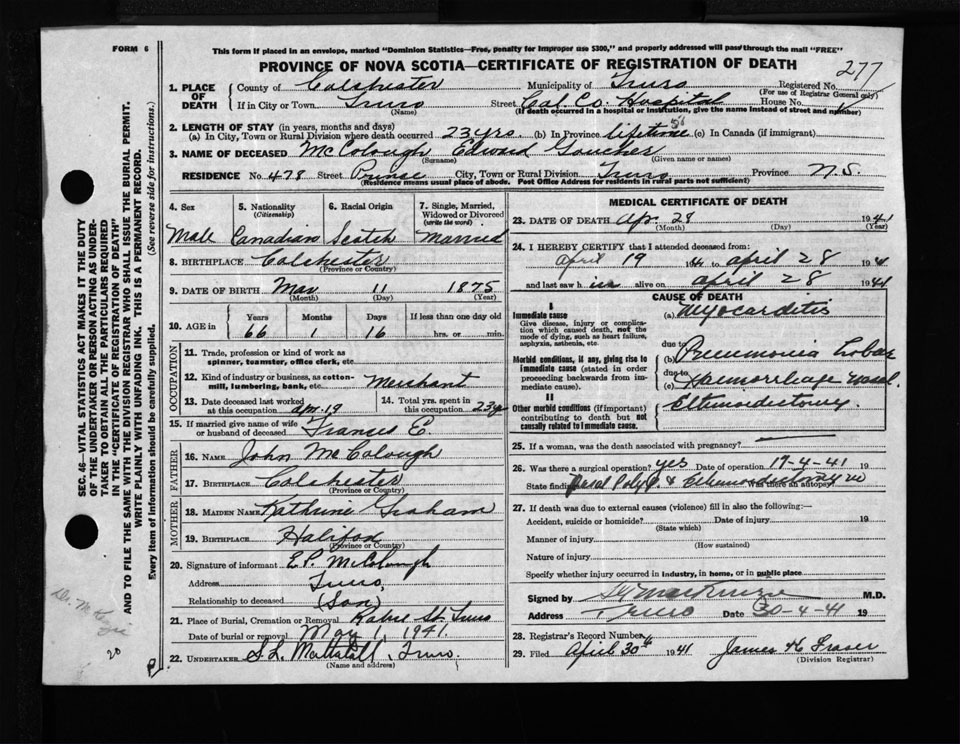 FORM 6
This form if placed in an envelope, marked "Dominion Statistics—Free, penalty for improper use $300," and properly addressed will pass through the mail "FREE"
PROVINCE OF NOVA SCOTIA—CERTIFICATE OF REGISTRATION OF DEATH
277
1. PLACE OF DEATH
County of Colchester Municipality of Truro Registered No.
(For use of Registrar General only)
If in City or Town Truro Street Col. Co. Hospital House No.
(Name) (If death occurred in a hospital or institution, give the name instead of street and number)
2. LENGTH OF STAY (in years, months and days)
(a) In City, Town or Rural Division where death occurred 23 yrs. (b) In Province lifetime (c) In Canada (if immigrant)
3. NAME OF DECEASED McColough Edward Goucher
(Surname) (Given name or names)
RESIDENCE No. 478 Street Prince City, Town or Rural Division Truro Province N.S.
(Residence means usual place of abode. Post Office Address for residents in rural parts not sufficient)
4. Sex 5. Nationality (Citizenship) 6. Racial Origin 7. Single, Married, Widowed or Divorced (write the word)
Male Canadian Scotch Married
8. BIRTHPLACE Colchester
(Province or Country)
9. DATE OF BIRTH Mar 11 1875
(Month) (Day) (Year)
10. AGE in Years Months Days If less than one day old
66 1 16 hrs. or min.
OCCUPATION
11. Trade, profession or kind of work as spinner, teamster, office clerk, etc.
12. Kind of industry or business, as cotton-mill, lumbering, bank, etc. Merchant
13. Date deceased last worked at this occupation Apr. 19 14. Total yrs. spent in this occupation 23 yr
15. If married give name of wife or husband of deceased Frances E.
FATHER
16. NAME John McColough
17. BIRTHPLACE Colchester
(Province or Country)
MOTHER
18. MAIDEN NAME Kathrine Graham
19. BIRTHPLACE Halifax
(Province or Country)
20. Signature of informant E.P. McColough
Address Truro,
Relationship to deceased (Son)
21. Place of Burial, Cremation or Removal St. Truro
Date of burial or removal May 1, 1941.
22. UNDERTAKER S.L. Mattatall, Truro.
(Name and address)
MEDICAL CERTIFICATE OF DEATH
23. DATE OF DEATH Apr. 28 1941
(Month) (Day) (Year)
24. I HEREBY CERTIFY that I attended deceased from:
April 19 1941 to April 28 1941
and last saw him alive on April 28 1941
CAUSE OF DEATH
I
Immediate cause
Give disease, injury or complication which caused death, not the mode of dying, such as heart failure, asphyxia, asthenia, etc.
(a) Myocarditis
due to
Morbid conditions, if any, giving rise to immediate cause (stated in order proceeding backwards from immediate cause).
(b) Pneumonia Lobar
due to
(c) Haemorrhage nasal.
II
Other morbid conditions (if important) contributing to death but not causally related to immediate cause.
Ethmoidectomy.
25. If a woman, was the death associated with pregnancy?
26. Was there a surgical operation? yes Date of operation 19-4-41 19
State findings Nasal Polyp & Ethmoidectomy Was there an autopsy? no
27. If death was due to external causes (violence) fill in also the following:—
Accident, suicide or homicide? Date of injury 19
(State which)
Manner of injury
(How sustained)
Nature of injury
Specify whether injury occurred in industry, in home, or in public place
Signed by MacKenzie M.D.
Address Truro Date 30-4-41 19
28. Registrar's Record Number
29. Filed April 30th 1941 James H Fraser
(Division Registrar)
SEC. 46—VITAL STATISTICS ACT MAKES IT THE DUTY
OF THE UNDERTAKER OR PERSON ACTING AS UNDER-
TAKER TO OBTAIN ALL THE PARTICULARS REQUIRED
IN THE "CERTIFICATE OF REGISTRATION OF DEATH"
AND TO FILE THE SAME WITH THE DIVISION REGISTRAR WHO SHALL ISSUE THE BURIAL PERMIT.
WRITE PLAINLY WITH UNFADING INK. THIS IS A PERMANENT RECORD.
Every item of Information should be carefully supplied. (See reverse side for instructions.)
20